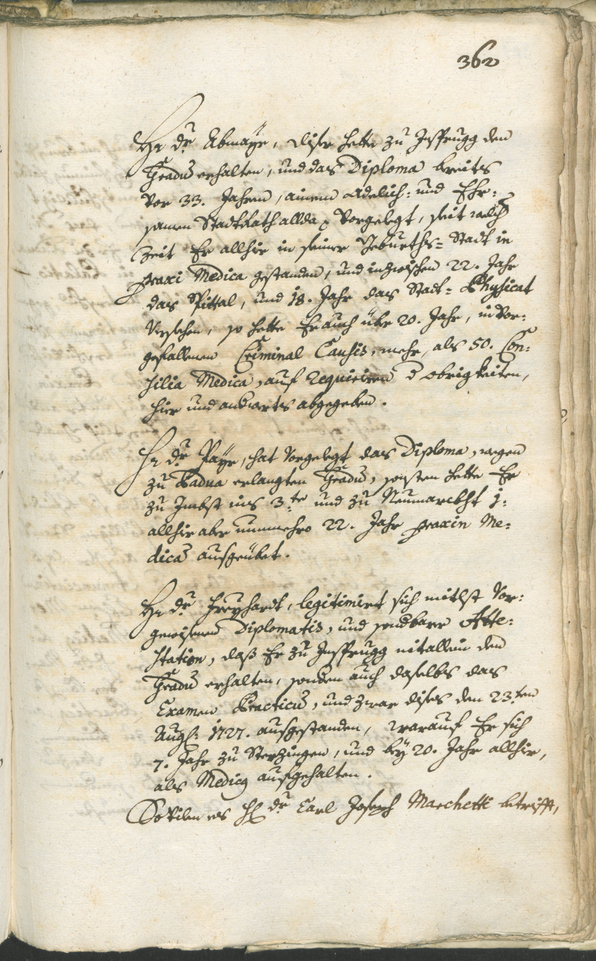 362
Hr. Dr. Abmayr, dißer hette zu Jnsprugg den
Gradū erhalten, und das Diploma bereits
vor 33. Jahren, ainem Adelich- und Ehr-
samen Stadtrath allda vorgelegt, seit welch
Zeit Er allhir in seiner Geburths-Stadt in
praxi Medica gestanden, und inzwischen 22. Jahr
das Spittal, und 18. Jahr das Stadt-Physicat
versehen, so hette Er auch über 20. Jahr, in vor-
gefallenen Criminal Causis, mehr, als 50. Con-
silia Medica, auf requiriren d obrigkeiten,
hier und anderts abgegeben.
Hr. Dr. Payr, hat vorgelegt das Diploma, wegen
zu Padua erlangten Gradū, sonsten hette Er
zu Jmbst ins 3.te und zu Neumarckht j.
allhir aber nunmehro 22. Jahr praxin Me-
dicā ausgeübet.
Hr. Dr. Freyhardt, legitimirt sich mitlst vor-
gewisenen Diplomatis, und sonderbarer Atte-
station, daß Er zu Jnsprugg nit allein den
Gradū erhalten, sondern auch daselbs das
Examen Practicū, und zwar dises den 23.ten
Augst. 1727. ausgestanden, worauf Er sich
7. Jahr zu Sterzingen, und bey 20. Jahr allhir,
als Medicg aufgehalten.
Sovilen es Hr. Dr. Carl Joseph Marchetti betrifft,